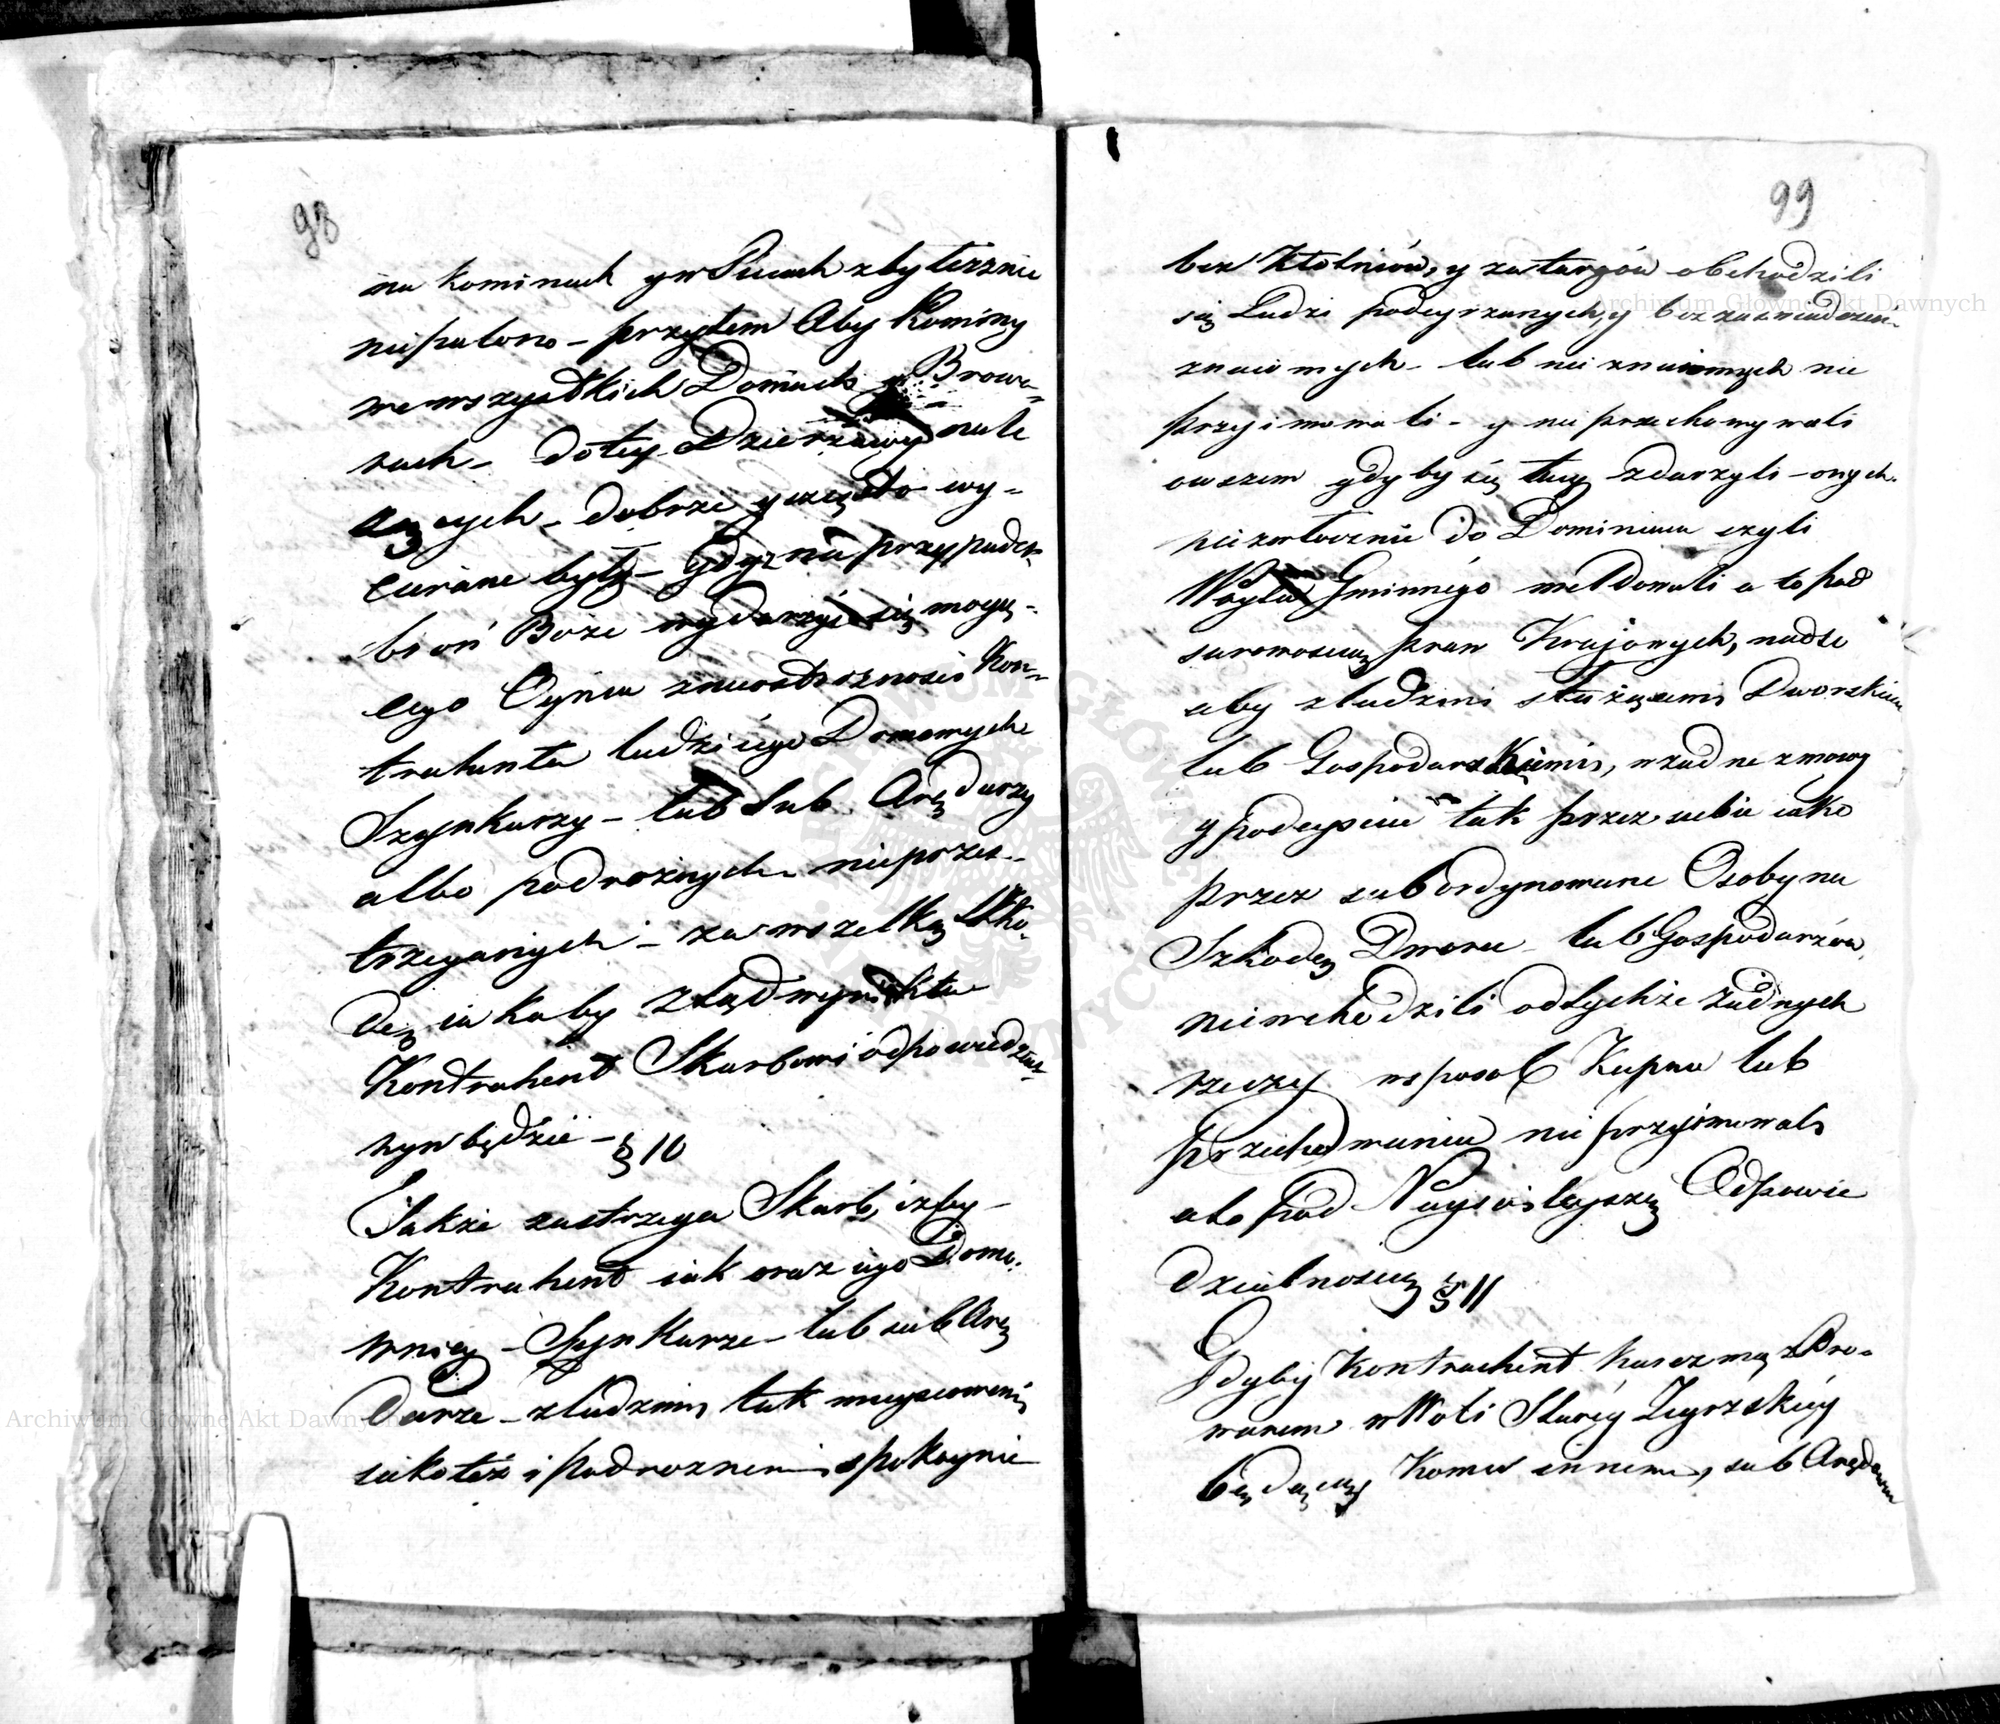 98
na kominach y w Piecach zbytecznie
nie palono – przytem Aby Kominy
we wszystkich Domach y Browa-
rach – do tey Dzierzawy nale
zących – dobrze y często wy-
cierane były – Gdyz na przypadek
broń Boze wydarzyć się mogą-
cego Ognia z nieostrozności Kon-
trahenta ludzi iego Domowych
Szynkarzy – lub Sub Arędarzy
albo podroznych nieprzes-
trzeganych – za wszelką Szko-
dę iakaby ztąd wynikła
Kontrahent Skarbowi odpowiedzial-
nym będzie – § 10
Takze zastrzega Skarb, izby –
Kontrahent iak oraz iego Domo-
wnicy – Szynkarze – lub sub Arę
darze – z ludzmi, tak mieyscowemi,
iakoteż i podroznemi, spokoynie
99
bez Kłotniów, y zatargów obchodzili
się Ludzi podeyrzanych, y bez zaswiadczeń
znaiomych – lub nie znaiomych nie
przyimowali – y nie przechowywali
owszem gdyby się tacy zdarzyli – onych
niezwłocznie do Dominium czyli
Woyta Gminnégo meldowali a to pod
surowoscią praw Kraiowych, nadto
aby z ludzmi służącemi Dworskiemi
lub Gospodarskiemi, w zadne zmowy
y podeyscie tak przez siebie iako
przez subordynowane Osoby na
Szkodę Dworu – lub Gospodarzów,
niewchodzili od tychże żadnych
rzeczy w sposob Kupna lub
przechowania nie przyimowali
a to pod Nayscisleyszą Odpowie
dzialnoscią § 11
Gdyby Kontrachent karczmę z Bro-
warem w Woli Staréy Zegrzskiéy
będącą Komu innemu, sub Arędowem
Archiwum Główne Akt Dawnych
Archiwum Główne Akt Dawnych
ARCHIWUM GŁÓWNE AKT DAWNYCH